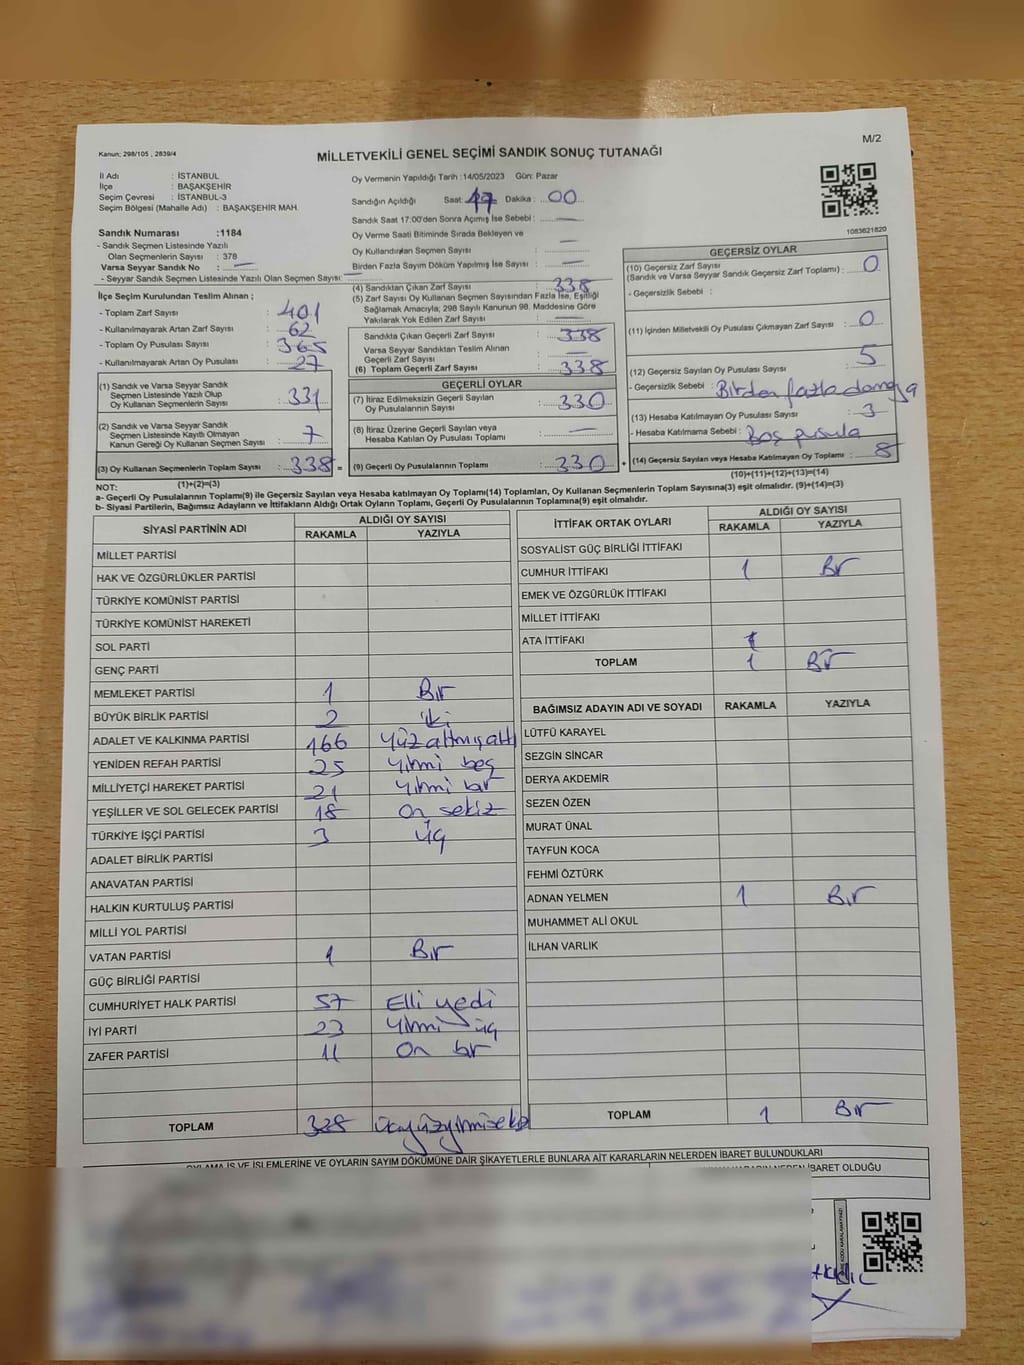 M/2
Kanun: 298/105 , 2839/4
MİLLETVEKİLİ GENEL SEÇİMİ SANDIK SONUÇ TUTANAĞI
İl Adı : İSTANBUL
İlçe : BAŞAKŞEHİR
Seçim Çevresi : İSTANBUL-3
Seçim Bölgesi (Mahalle Adı) : BAŞAKŞEHİR MAH.
Sandık Numarası :1184
- Sandık Seçmen Listesinde Yazılı
Olan Seçmenlerin Sayısı : 378
Varsa Seyyar Sandık No : —
- Seyyar Sandık Seçmen Listesinde Yazılı Olan Seçmen Sayısı: —
Oy Vermenin Yapıldığı Tarih :14/05/2023 Gün: Pazar
Sandığın Açıldığı Saat: 17 Dakika : 00
Sandık Saat 17:00'den Sonra Açımış İse Sebebi : —
Oy Verme Saati Bitiminde Sırada Bekleyen ve
Oy Kullandırılan Seçmen Sayısı : —
Birden Fazla Sayım Döküm Yapılmış İse Sayısı : —
1083621820
İlçe Seçim Kurulundan Teslim Alınan ;
- Toplam Zarf Sayısı : 401
- Kullanılmayarak Artan Zarf Sayısı : 62
- Toplam Oy Pusulası Sayısı : 365
- Kullanılmayarak Artan Oy Pusulası : 27
(1) Sandık ve Varsa Seyyar Sandık
Seçmen Listesinde Yazılı Olup
Oy Kullanan Seçmenlerin Sayısı : 331
(2) Sandık ve Varsa Seyyar Sandık
Seçmen Listesinde Kayıtlı Olmayan
Kanun Gereği Oy Kullanan Seçmen Sayısı : 7
(3) Oy Kullanan Seçmenlerin Toplam Sayısı : 338 =
(1)+(2)=(3)
(4) Sandıktan Çıkan Zarf Sayısı : 338
(5) Zarf Sayısı Oy Kullanan Seçmen Sayısından Fazla İse, Eşitliği
Sağlamak Amacıyla; 298 Sayılı Kanunun 98. Maddesine Göre
Yakılarak Yok Edilen Zarf Sayısı : —
Sandıkta Çıkan Geçerli Zarf Sayısı : 338
Varsa Seyyar Sandıktan Teslim Alınan
Geçerli Zarf Sayısı : —
(6) Toplam Geçerli Zarf Sayısı : 338
GEÇERLİ OYLAR
(7) İtiraz Edilmeksizin Geçerli Sayılan
Oy Pusulalarının Sayısı : 330
(8) İtiraz Üzerine Geçerli Sayılan veya
Hesaba Katılan Oy Pusulası Toplamı : —
(9) Geçerli Oy Pusulalarının Toplamı : 330 +
GEÇERSİZ OYLAR
(10) Geçersiz Zarf Sayısı
(Sandık ve Varsa Seyyar Sandık Geçersiz Zarf Toplamı) : 0
- Geçersizlik Sebebi :
(11) İçinden Milletvekili Oy Pusulası Çıkmayan Zarf Sayısı : 0
(12) Geçersiz Sayılan Oy Pusulası Sayısı : 5
- Geçersizlik Sebebi : Birden fazla damga
(13) Hesaba Katılmayan Oy Pusulası Sayısı : 3
- Hesaba Katılmama Sebebi : Boş pusula
(14) Geçersiz Sayılan veya Hesaba Katılmayan Oy Toplamı : 8
(10)+(11)+(12)+(13)=(14)
NOT:
a- Geçerli Oy Pusulalarının Toplamı(9) ile Geçersiz Sayılan veya Hesaba katılmayan Oy Toplamı(14) Toplamları, Oy Kullanan Seçmenlerin Toplam Sayısına(3) eşit olmalıdır. (9)+(14)=(3)
b- Siyasi Partilerin, Bağımsız Adayların ve İttifakların Aldığı Ortak Oyların Toplamı, Geçerli Oy Pusulalarının Toplamına(9) eşit olmalıdır.
SİYASİ PARTİNİN ADI ALDIĞI OY SAYISI
RAKAMLA YAZIYLA
MİLLET PARTİSİ
HAK VE ÖZGÜRLÜKLER PARTİSİ
TÜRKİYE KOMÜNİST PARTİSİ
TÜRKİYE KOMÜNİST HAREKETİ
SOL PARTİ
GENÇ PARTİ
MEMLEKET PARTİSİ 1 Bir
BÜYÜK BİRLİK PARTİSİ 2 iki
ADALET VE KALKINMA PARTİSİ 166 yüzaltmışaltı
YENİDEN REFAH PARTİSİ 25 yirmi beş
MİLLİYETÇİ HAREKET PARTİSİ 21 yirmi bir
YEŞİLLER VE SOL GELECEK PARTİSİ 18 on sekiz
TÜRKİYE İŞÇİ PARTİSİ 3 üç
ADALET BİRLİK PARTİSİ
ANAVATAN PARTİSİ
HALKIN KURTULUŞ PARTİSİ
MİLLİ YOL PARTİSİ
VATAN PARTİSİ 1 Bir
GÜÇ BİRLİĞİ PARTİSİ
CUMHURİYET HALK PARTİSİ 57 Elli yedi
İYİ PARTİ 23 yirmi üç
ZAFER PARTİSİ 11 On bir
TOPLAM 328 üçyüzyirmisekiz
İTTİFAK ORTAK OYLARI ALDIĞI OY SAYISI
RAKAMLA YAZIYLA
SOSYALİST GÜÇ BİRLİĞİ İTTİFAKI
CUMHUR İTTİFAKI 1 Bir
EMEK VE ÖZGÜRLÜK İTTİFAKI
MİLLET İTTİFAKI
ATA İTTİFAKI
TOPLAM 1 Bir
BAĞIMSIZ ADAYIN ADI VE SOYADI RAKAMLA YAZIYLA
LÜTFÜ KARAYEL
SEZGİN SİNCAR
DERYA AKDEMİR
SEZEN ÖZEN
MURAT ÜNAL
TAYFUN KOCA
FEHMİ ÖZTÜRK
ADNAN YELMEN 1 Bir
MUHAMMET ALİ OKUL
İLHAN VARLIK
TOPLAM 1 Bir
OYLAMA İŞ VE İŞLEMLERİNE VE OYLARIN SAYIM DÖKÜMÜNE DAİR ŞİKAYETLERLE BUNLARA AİT KARARLARIN NELERDEN İBARET BULUNDUKLARI
İBARET OLDUĞU